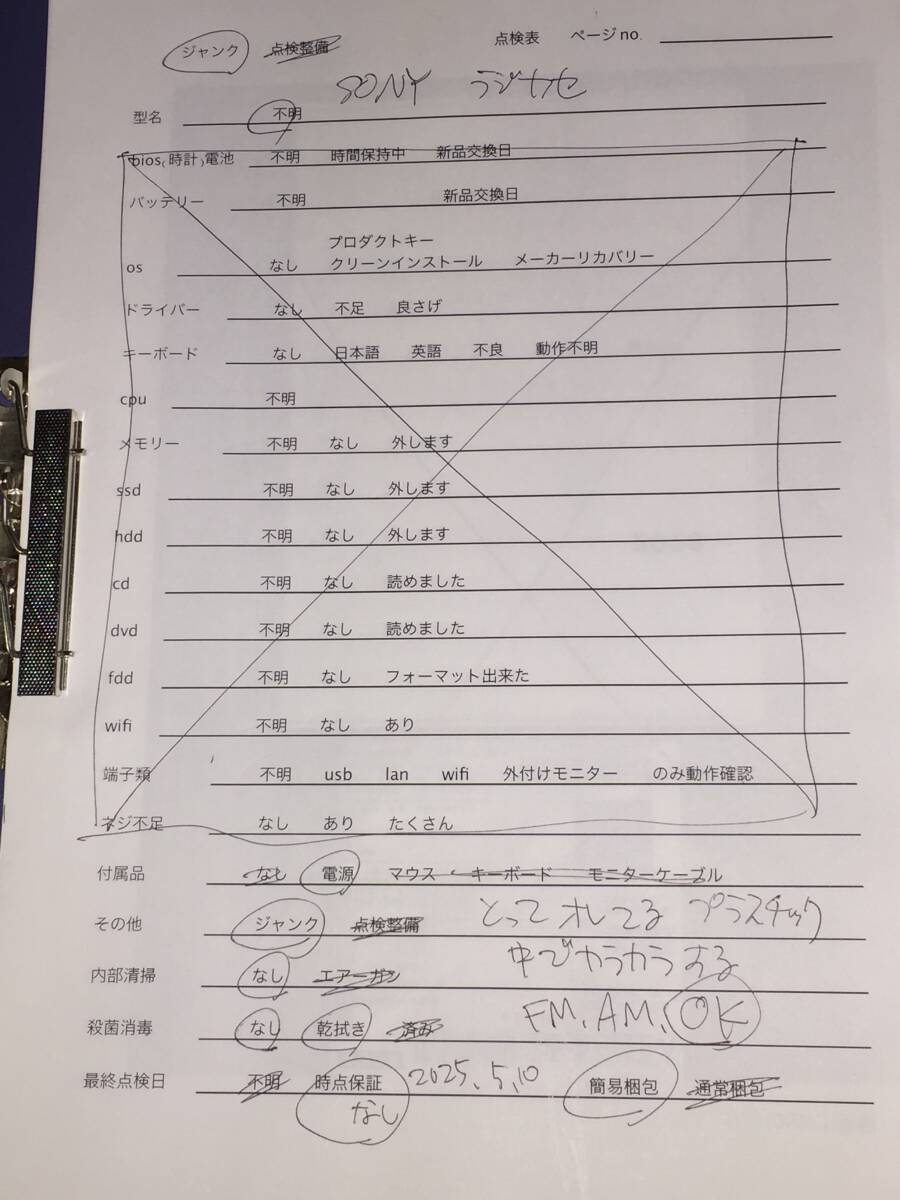 ジャンク 点検整備 点検表 ページno.
SONY ラジカセ
型名 不明
bios(時計)電池 不明 時間保持中 新品交換日
バッテリー 不明 新品交換日
プロダクトキー
os なし クリーンインストール メーカーリカバリー
ドライバー なし 不足 良さげ
キーボード なし 日本語 英語 不良 動作不明
cpu 不明
メモリー 不明 なし 外します
ssd 不明 なし 外します
hdd 不明 なし 外します
cd 不明 なし 読めました
dvd 不明 なし 読めました
fdd 不明 なし フォーマット出来た
wifi 不明 なし あり
端子類 不明 usb lan wifi 外付けモニター のみ動作確認
ネジ不足 なし あり たくさん
付属品 なし 電源 マウス キーボード モニターケーブル
その他 ジャンク 点検整備 とってオレてる プラスチック
中でカラカラする
内部清掃 なし エアーガン
FM、AM、OK
殺菌消毒 なし 乾拭き 済み
最終点検日 不明 時点保証 2025、5、10 簡易梱包 通常梱包
なし